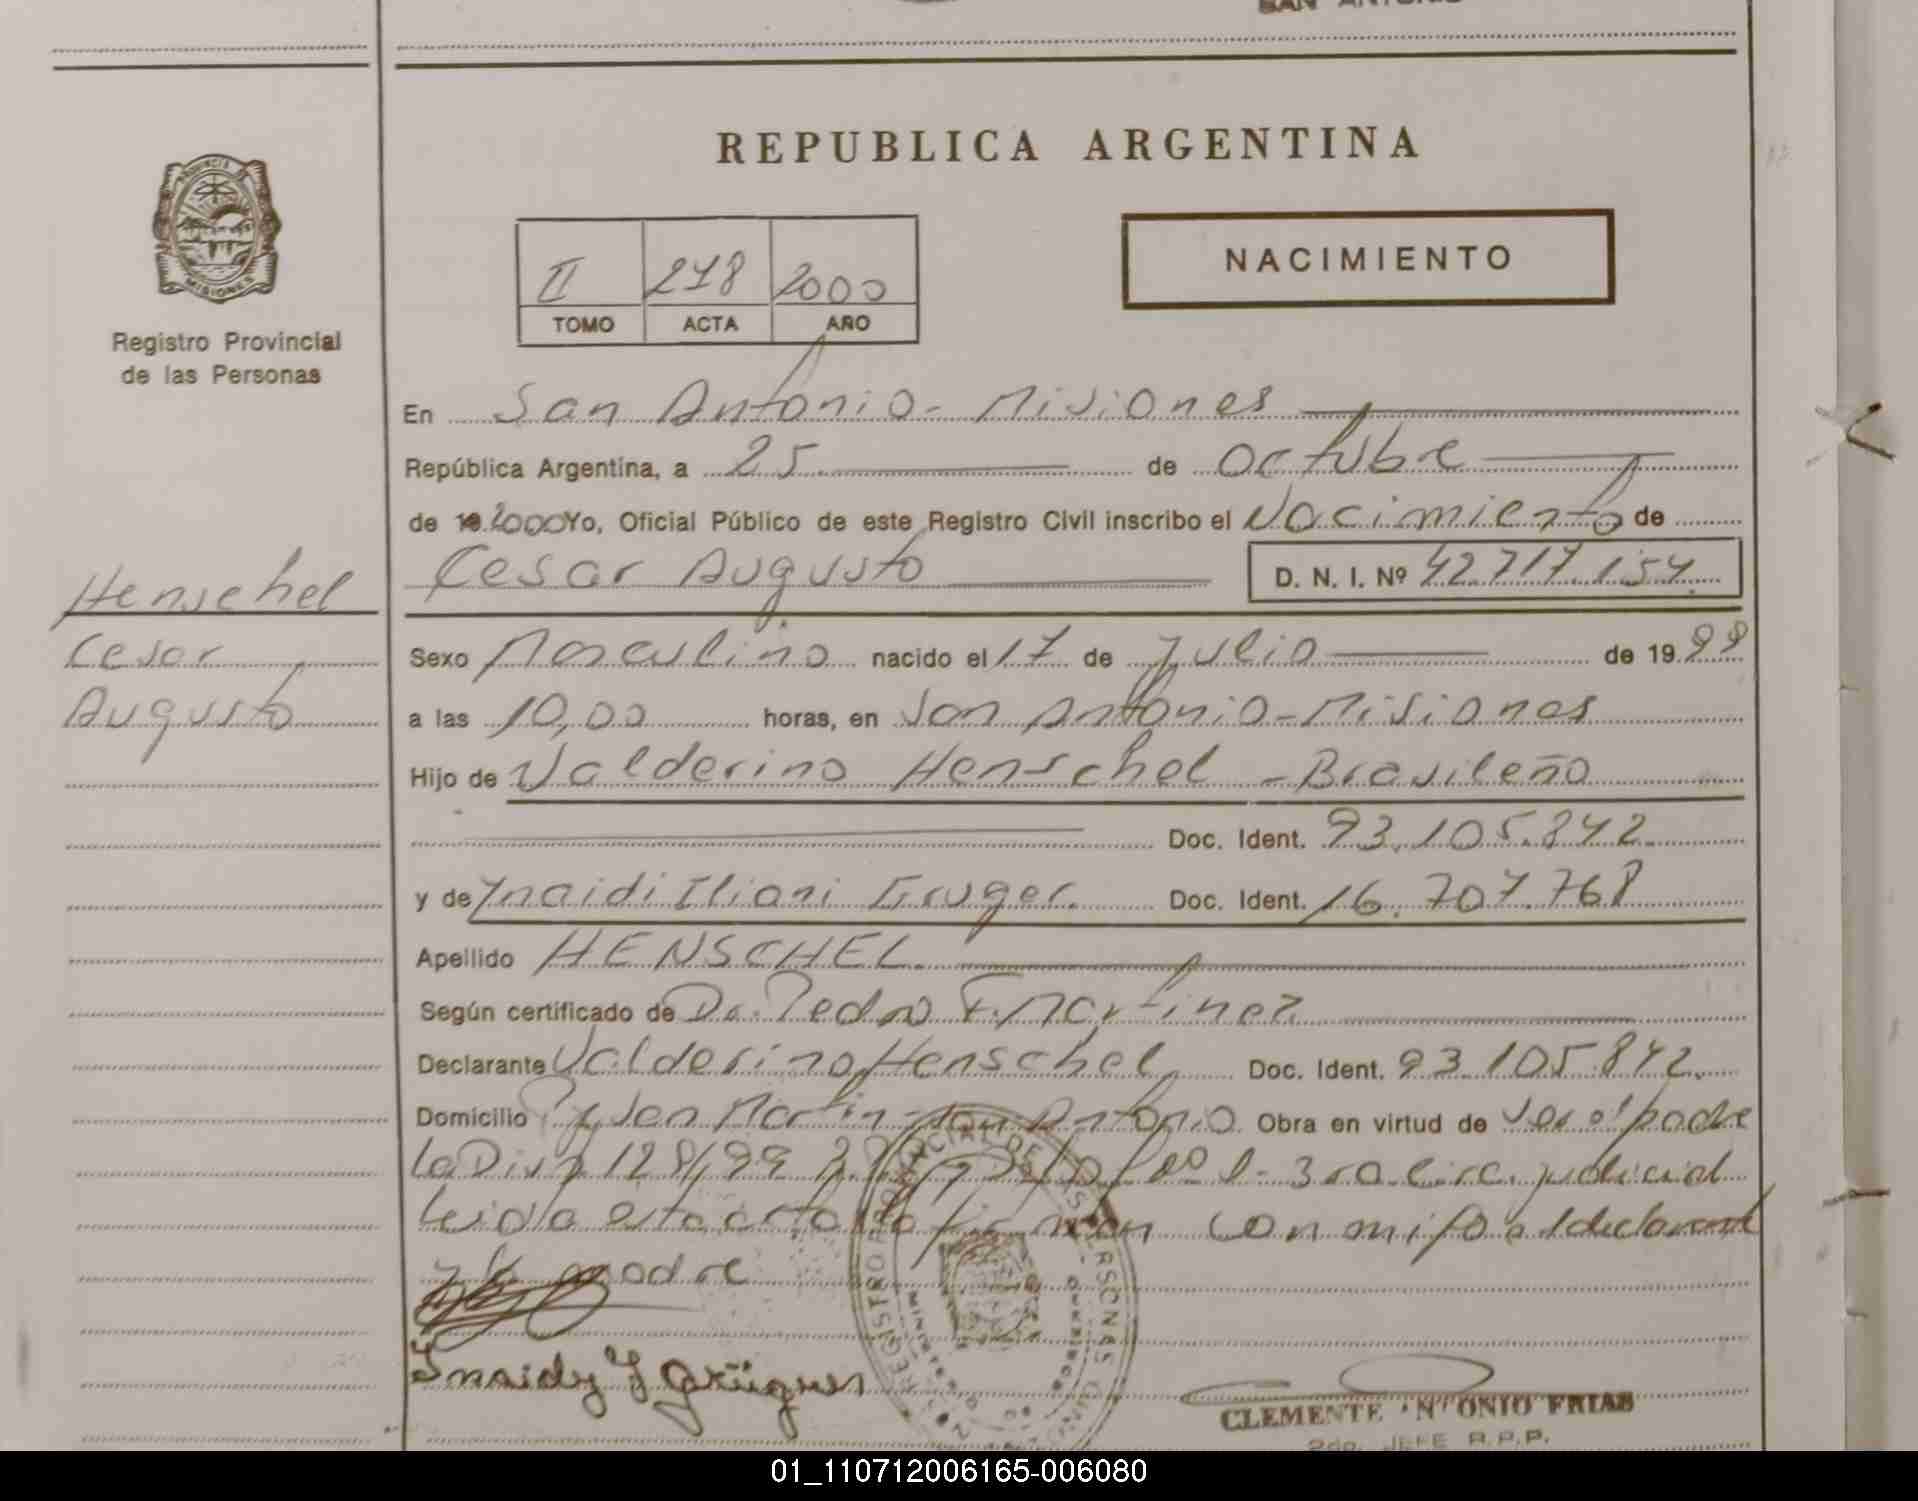 SAN ANTONIO
REPUBLICA ARGENTINA
PROVINCIA
MISIONES
Registro Provincial
de las Personas
II 278 2000
TOMO ACTA AÑO
NACIMIENTO
En San Antonio - Misiones
República Argentina, a 25 de Octubre
de 19 2000 Yo, Oficial Público de este Registro Civil inscribo el Nacimiento de
Cesar Augusto D. N. I. Nº 42.717.154
Henschel
Cesar
Augusto
Sexo Masculino nacido el 17 de Julio de 1999
a las 10,00 horas, en San Antonio - Misiones
Hijo de Valderino Henschel - Brasileño
Doc. Ident. 93.105.842
y de Ynaidi Iliani Gruger Doc. Ident. 16.707.768
Apellido HENSCHEL
Según certificado de Dr. Pedro F. Martinez
Declarante Valderino Henschel Doc. Ident. 93.105.842.
Domicilio San Martin - San Antonio Obra en virtud de
La Disp 128/99 3ra circ. judicial
leida esta acta la firman con migo el declarante
y la madre
Inaidy I Grüguer
REGISTRO PROVINCIAL DE LAS PERSONAS
CLEMENTE ANTONIO FRIAS
2do. JEFE R.P.P.
01_110712006165-006080